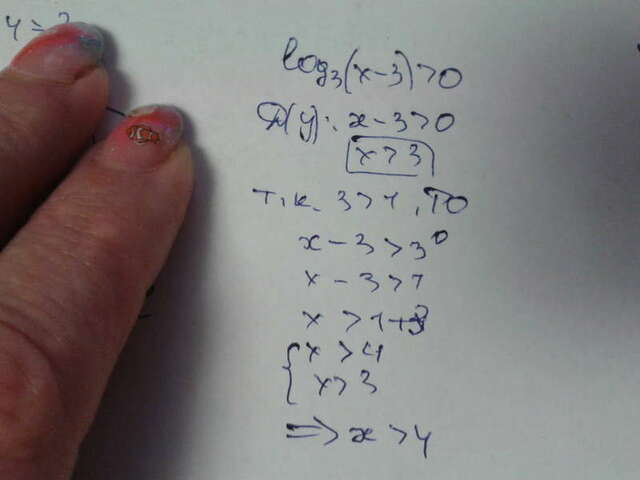 y = 2
log₃(x-3)>0
D(y): x-3>0
x>3
т.к. 3>1, то
x-3>3⁰
x-3>1
x>1+3
x>4
x>3
=> x>4